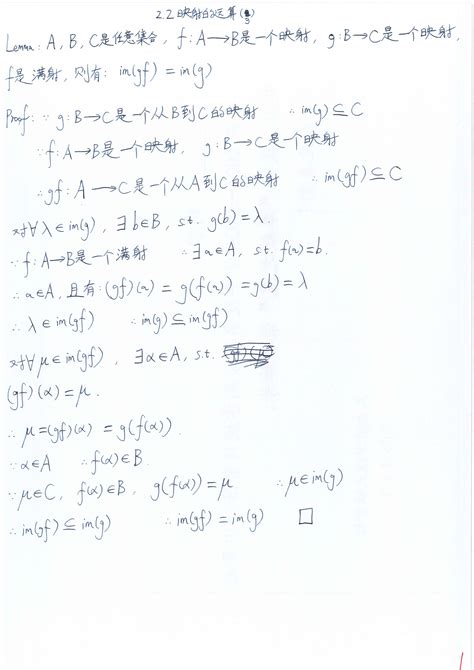 2.2映射的运算(3)
Lemma: A, B, C是任意集合, f: A→B是一个映射, g: B→C是一个映射,
f是满射, 则有: im(gf) = im(g)
Proof: ∵ g: B→C是一个从B到C的映射 ∴ im(g) ⊆ C
∵ f: A→B是一个映射, g: B→C是一个映射
∴ gf: A→C是一个从A到C的映射 ∴ im(gf) ⊆ C
对∀λ∈im(g), ∃b∈B, s.t. g(b)=λ.
∵ f: A→B是一个满射 ∴ ∃a∈A, s.t. f(a)=b.
∴ a∈A, 且有: (gf)(a) = g(f(a)) = g(b) = λ
∴ λ∈im(gf) ∴ im(g) ⊆ im(gf)
对∀μ∈im(gf), ∃α∈A, s.t.
(gf)(α) = μ.
∴ μ=(gf)(α) = g(f(α)).
∵ α∈A ∴ f(α)∈B.
∵ μ∈C, f(α)∈B, g(f(α)) = μ ∴ μ∈im(g)
∴ im(gf) ⊆ im(g) ∴ im(gf) = im(g) □
1